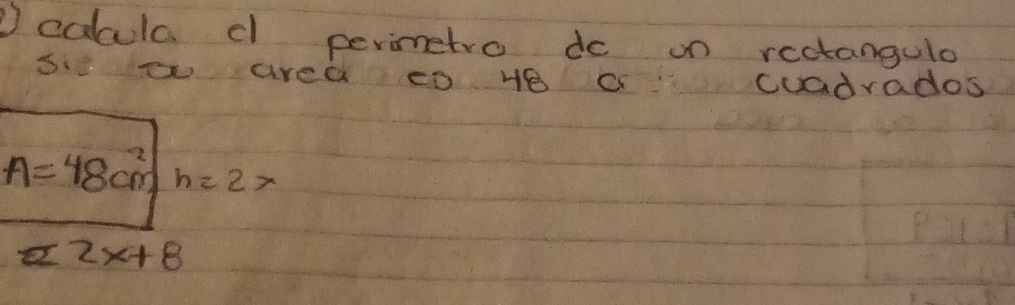 2) calcula el perimetro de un rectangulo
si su area es 48 cuadrados
A=48cm² h=2x
2x+8